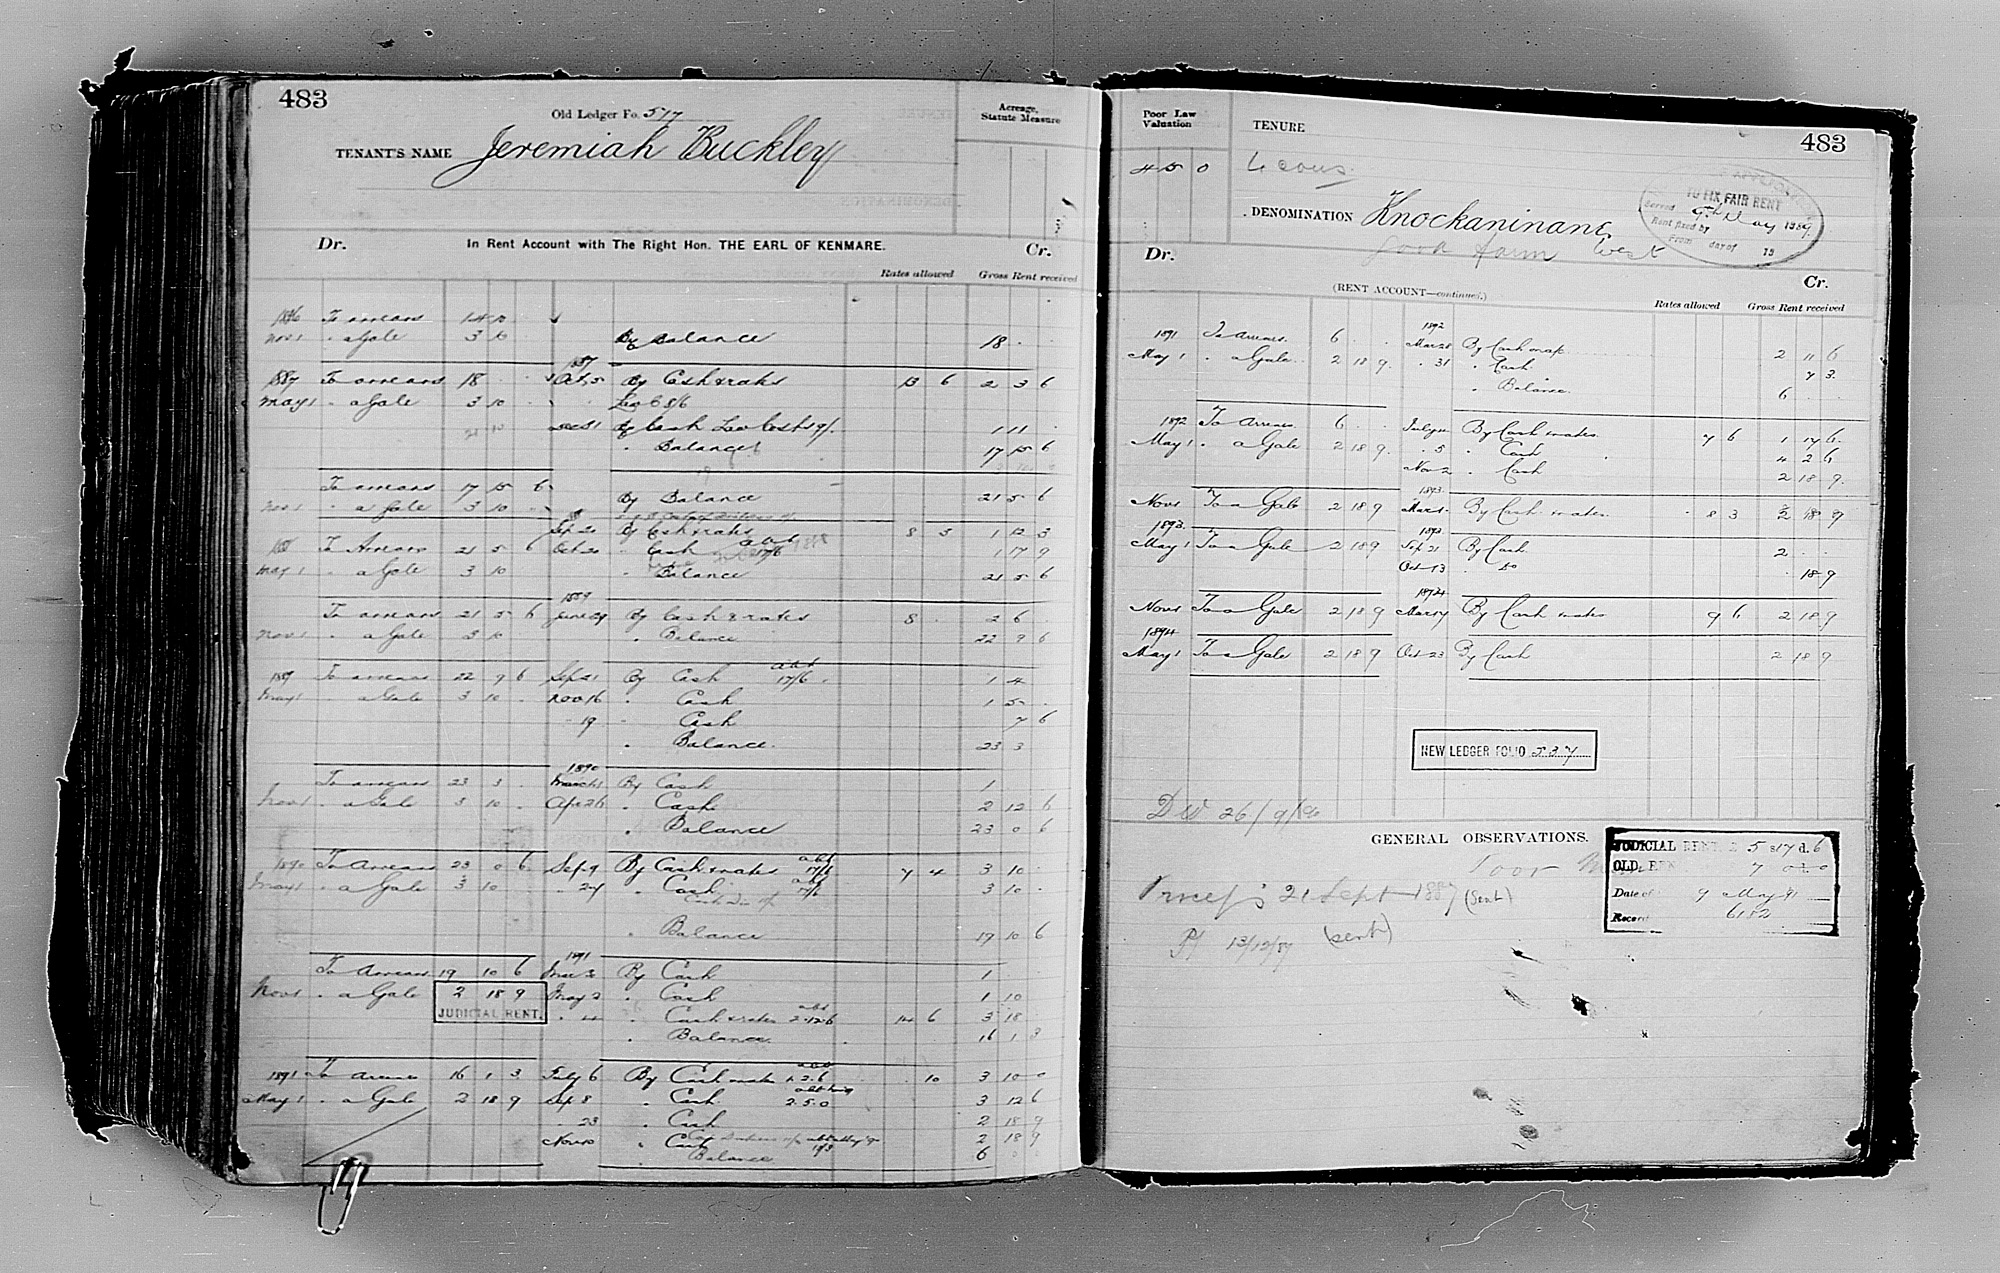 483
Old Ledger Fo. 517
TENANT'S NAME Jeremiah Buckley
Acreage, Statute Measure
Dr. In Rent Account with The Right Hon. THE EARL OF KENMARE. Cr.
Rates allowed Gross Rent received
1886 To arrears 14 10
Nov 1 " a Gale 3 10 By Balance 18 . .
1887
1887 To arrears 18 . . Oct 5 By Cash & rates 13 6 2 3 6
May 1 " a Gale 3 10
Dec 31 By Cash Less Costs 19/- 1 11 .
" Balance 17 15 6
To arrears 17 15 6
Nov 1 " a Gale 3 10 . By Balance 21 5 6
Sep 20 By Cash & rates 8 3 1 12 3
To Arrears 21 5 6 Oct 20 " Cash abt 17/6 1 17 9
May 1 " a Gale 3 10 " Balance 21 5 6
1889
To arrears 21 5 6 June 29 By Cash & rates 8 . 2 6
Nov 1 " a Gale 3 10 " Balance 22 9 6
1889 To arrears 22 9 6 Sep 21 By Cash abt 17/6 1 4
May 1 " a Gale 3 10 . Nov 16 " Cash 1 5 .
" 19 " Cash 7 6
" Balance. 23 3
1890
To arrears 23 3 . March 1 By Cash 1
Nov 1 " a Gale 3 10 . Apr 26 " Cash 2 12 6
" Balance 23 0 6
1890 To Arrears 23 0 6 Sep 9 By Cash & rates abt 17/6 7 4 3 10
May 1 " a Gale 3 10 " 27 " Cash abt 17/6 3 10 .
" Balance 19 10 6
1891
To Arrears 19 10 6 By Cash 1
Nov 1 " a Gale 2 18 9 May 2 " Cash 1 10
JUDICIAL RENT.
" 4 " Cash & rates abt 2.12.6 14 6 3 18
" Balance. 16 1 3
1891 To arrears 16 1 3 July 6 By Cash & rates abt 1.2.6 10 3 10 0
May 1 " a Gale 2 18 9 Sep 8 " Cash 2.5.0 3 12 6
" 23 " Cash 2 18 9
Nov 10 " Cash 2 18 9
" Balance 6 0 0
Poor Law Valuation
4 15 0
TENURE
483
DENOMINATION Knockaninane
West
TO FIX FAIR RENT
Served 9th May 1889.
Rent fixed by
From day of 18
Dr. (RENT ACCOUNT—continued.) Cr.
Rates allowed Gross Rent received
1892
1891 To Arrears. 6 . . Mar 28 By Cash 2 11 6
May 1 " a Gale. 2 18 9. " 31 " Cash 7 3.
" Balance. 6 . .
1892 To Arrears 6 . . July By Cash & rates. 7 6 1 17 6.
May 1 " a Gale 2 18 9. " 5 " Cash 4 2 6
Nov 2 " Cash 2 18 9.
1893.
Nov 1 To a Gale 2 18 9 Mar By Cash & rates. 8 3 2 18 9
1893. 1893
May 1 To a Gale 2 18 9 Sep 21 By Cash. 2 . .
Oct 13 " Do . 18 9
1894
Nov 1 To a Gale 2 18 9 Mar 17 By Cash & rates 9 6 2 18 9
1894
May 1 To a Gale 2 18 9 Oct 23 By Cash 2 18 9
NEW LEDGER FOLIO 537
GENERAL OBSERVATIONS.
21 Sept 1887 (sent)
13/12/87 (sent)
JUDICIAL RENT £ 5 s 17 d. 6
OLD RENT 7 0 0
Date of 9 May 91
Record 6182